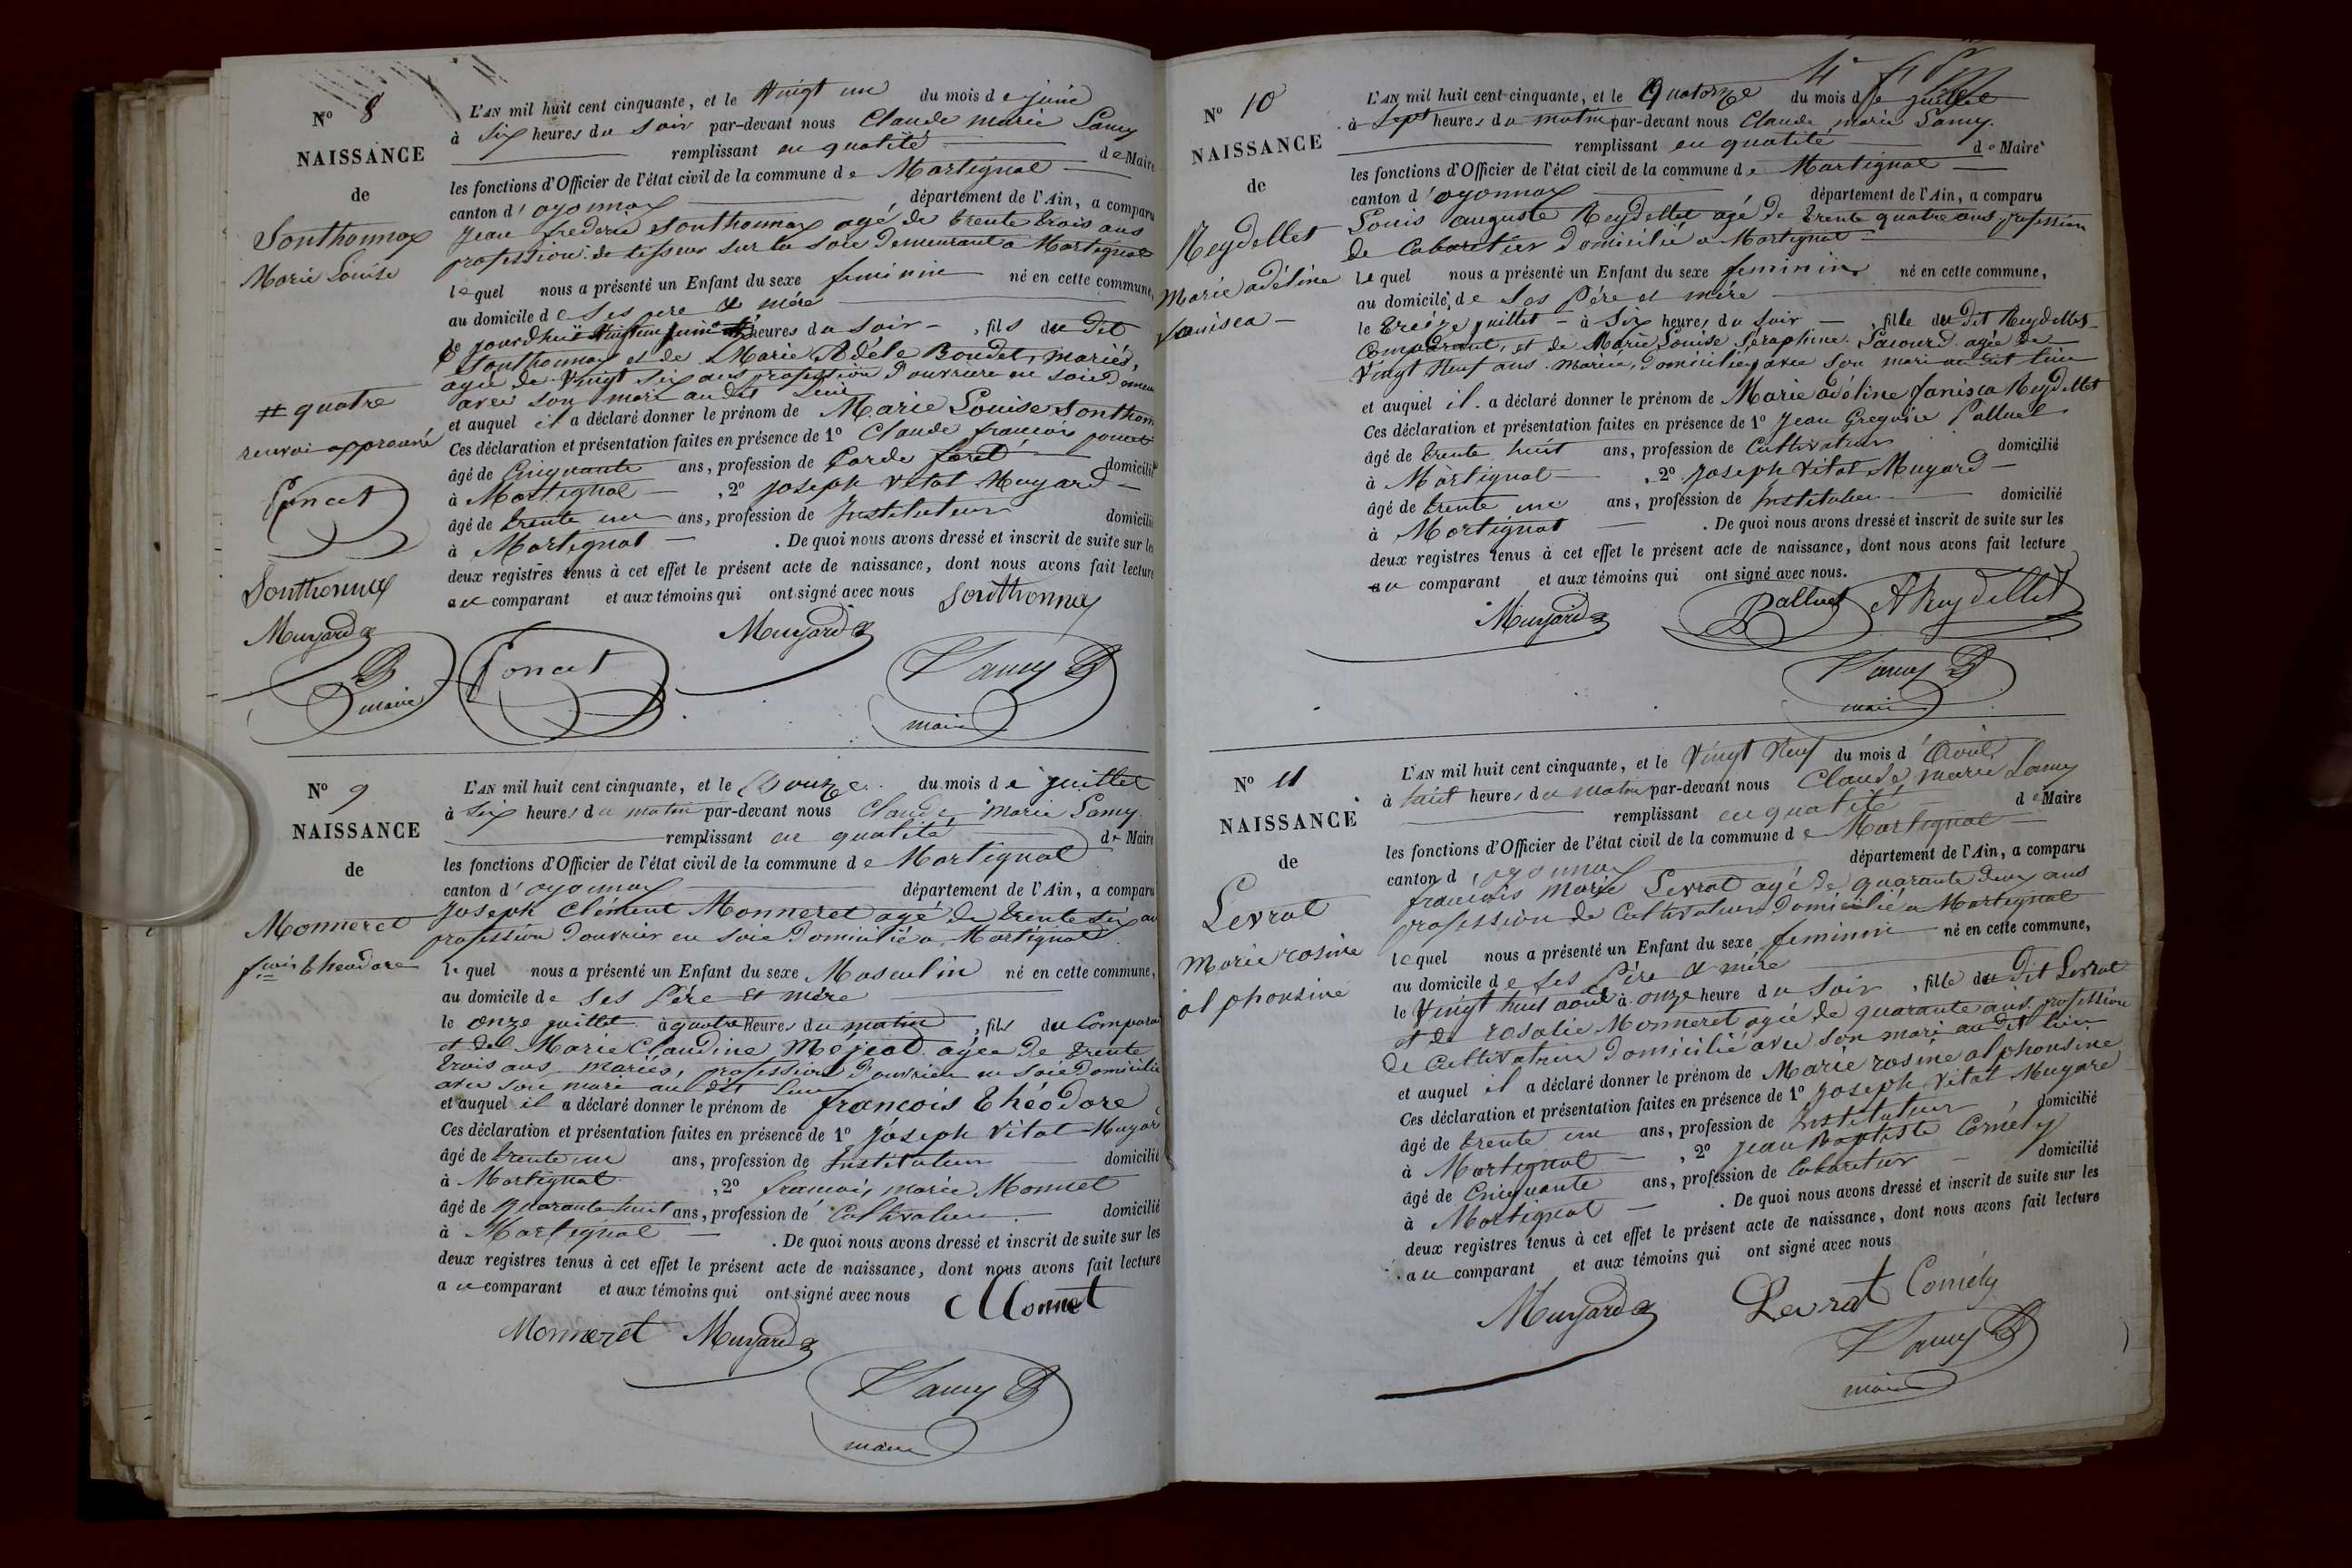 N° 8
NAISSANCE
de
Sonthonnax
Marie Louise
# quatre
renvoi approuvé
Poncet
Sonthonnax
Muyard
maire
L'AN mil huit cent cinquante, et le Vingt un du mois de juin
à Six heures du Soir par-devant nous Claude marie Lamy
remplissant en qualité de Maire
les fonctions d'Officier de l'état civil de la commune de Martignat
canton d'oyonnax département de l'Ain, a comparu
Jean frederic Sonthonnax agé de trente trois ans
profession de tisseur sur la soie demeurant a Martignat
lequel nous a présenté un Enfant du sexe feminin né en cette commune,
au domicile de Ses pere et mére
le jourdhui Vingt un juin # heures du Soir , fils du dit
Sonthonnax et de Marie Adéle Boudet, mariés,
agée de Vingt Six ans profession d'ouvriere en soie
avec son mari au dit lieu
et auquel il a déclaré donner le prénom de Marie Louise Sonthon
Ces déclaration et présentation faites en présence de 1° Claude francois poncet
âgé de Cinquante ans, profession de Garde forêt domicilié
à Martignat , 2° joseph Vital Muyard
âgé de trente un ans, profession de Instituteur domicilié
à Martignat . De quoi nous avons dressé et inscrit de suite sur les
deux registres tenus à cet effet le présent acte de naissance, dont nous avons fait lecture
au comparant et aux témoins qui ont signé avec nous Sonthonnax
Muyard
Poncet
Lamy
maire
N° 9
NAISSANCE
de
Monneret
fcois théodore
L'AN mil huit cent cinquante, et le Douze du mois de juillet
à Six heures du matin par-devant nous Claude Marie Lamy
remplissant en qualité de Maire
les fonctions d'Officier de l'état civil de la commune de Martignat
canton d'oyonnax département de l'Ain, a comparu
Joseph Clément Monneret agé de trente Six ans
profession d'ouvrier en soie domicilié a Martignat
lequel nous a présenté un Enfant du sexe Masculin né en cette commune,
au domicile de Ses Pére et mére
le onze juillet à quatre heures du matin , fils du Comparant
et de Marie Claudine Mojeat agée de trente
trois ans, mariés, profession d'ouvriere en soie Domicilié
avec son mari au dit Lieu
et auquel il a déclaré donner le prénom de françois théodore
Ces déclaration et présentation faites en présence de 1° Joseph Vital Muyard
âgé de trente un ans, profession de Instituteur domicilié
à Martignat , 2° francois marie Monnet
âgé de quarante huit ans, profession de Cultivateur domicilié
à Martignat . De quoi nous avons dressé et inscrit de suite sur les
deux registres tenus à cet effet le présent acte de naissance, dont nous avons fait lecture
au comparant et aux témoins qui ont signé avec nous Monnet
Monneret Muyard
Lamy
maire
4e
N° 10
NAISSANCE
de
Reydellet
Marie adéline
fanisca
L'AN mil huit cent cinquante, et le Quatorze du mois de juillet
à Sept heures du matin par-devant nous Claude marie Lamy
remplissant en qualité de Maire
les fonctions d'Officier de l'état civil de la commune de Martignat
canton d'oyonnax département de l'Ain, a comparu
Louis auguste Reydellet agé de trente quatre ans profession
de Cabaretier domicilié a Martignat
lequel nous a présenté un Enfant du sexe feminin né en cette commune,
au domicile de Ses Pére et mére
le treize juillet à Six heures du Soir , fille du dit Reydellet
Comparant, et de Marie Louise Seraphine Savourd agée de
Vingt Neuf ans. Mariés, domiciliée avec son mari au dit lieu
et auquel il a déclaré donner le prénom de Marie adéline fanisca Reydellet
Ces déclaration et présentation faites en présence de 1° Jean Gregoire Palluel
âgé de trente huit ans, profession de Cultivateur domicilié
à Martignat , 2° Joseph Vital Muyard
âgé de trente un ans, profession de Instituteur domicilié
à Martignat . De quoi nous avons dressé et inscrit de suite sur les
deux registres tenus à cet effet le présent acte de naissance, dont nous avons fait lecture
au comparant et aux témoins qui ont signé avec nous.
Muyard Palluel A Reydellet
Lamy
maire
N° 11
NAISSANCE
de
Levrat
Marie rosine
alphonsine
L'AN mil huit cent cinquante, et le Vingt Neuf du mois d'Août
à huit heures du matin par-devant nous Claude marie Lamy
remplissant en qualité de Maire
les fonctions d'Officier de l'état civil de la commune de Martignat
canton d'oyonnax département de l'Ain, a comparu
francois Marie Levrat agé de quarante deux ans
profession de Cultivateur domicilié a Martignat
lequel nous a présenté un Enfant du sexe feminin né en cette commune,
au domicile de Ses Pére et mére
le Vingt huit août à onze heure du Soir , fille du dit Levrat
et de rosalie Monneret agée de quarante ans profession
de Cultivatrice domicilié avec son mari au dit lieu
et auquel il a déclaré donner le prénom de Marie rosine alphonsine
Ces déclaration et présentation faites en présence de 1° Joseph Vital Muyard
âgé de trente un ans, profession de Instituteur , domicilié
à Martignat , 2° Jean Baptiste Cométy
âgé de Cinquante ans, profession de Cabaretier domicilié
à Martignat . De quoi nous avons dressé et inscrit de suite sur les
deux registres tenus à cet effet le présent acte de naissance, dont nous avons fait lecture
au comparant et aux témoins qui ont signé avec nous
Muyard Levrat Cométy
Lamy
maire